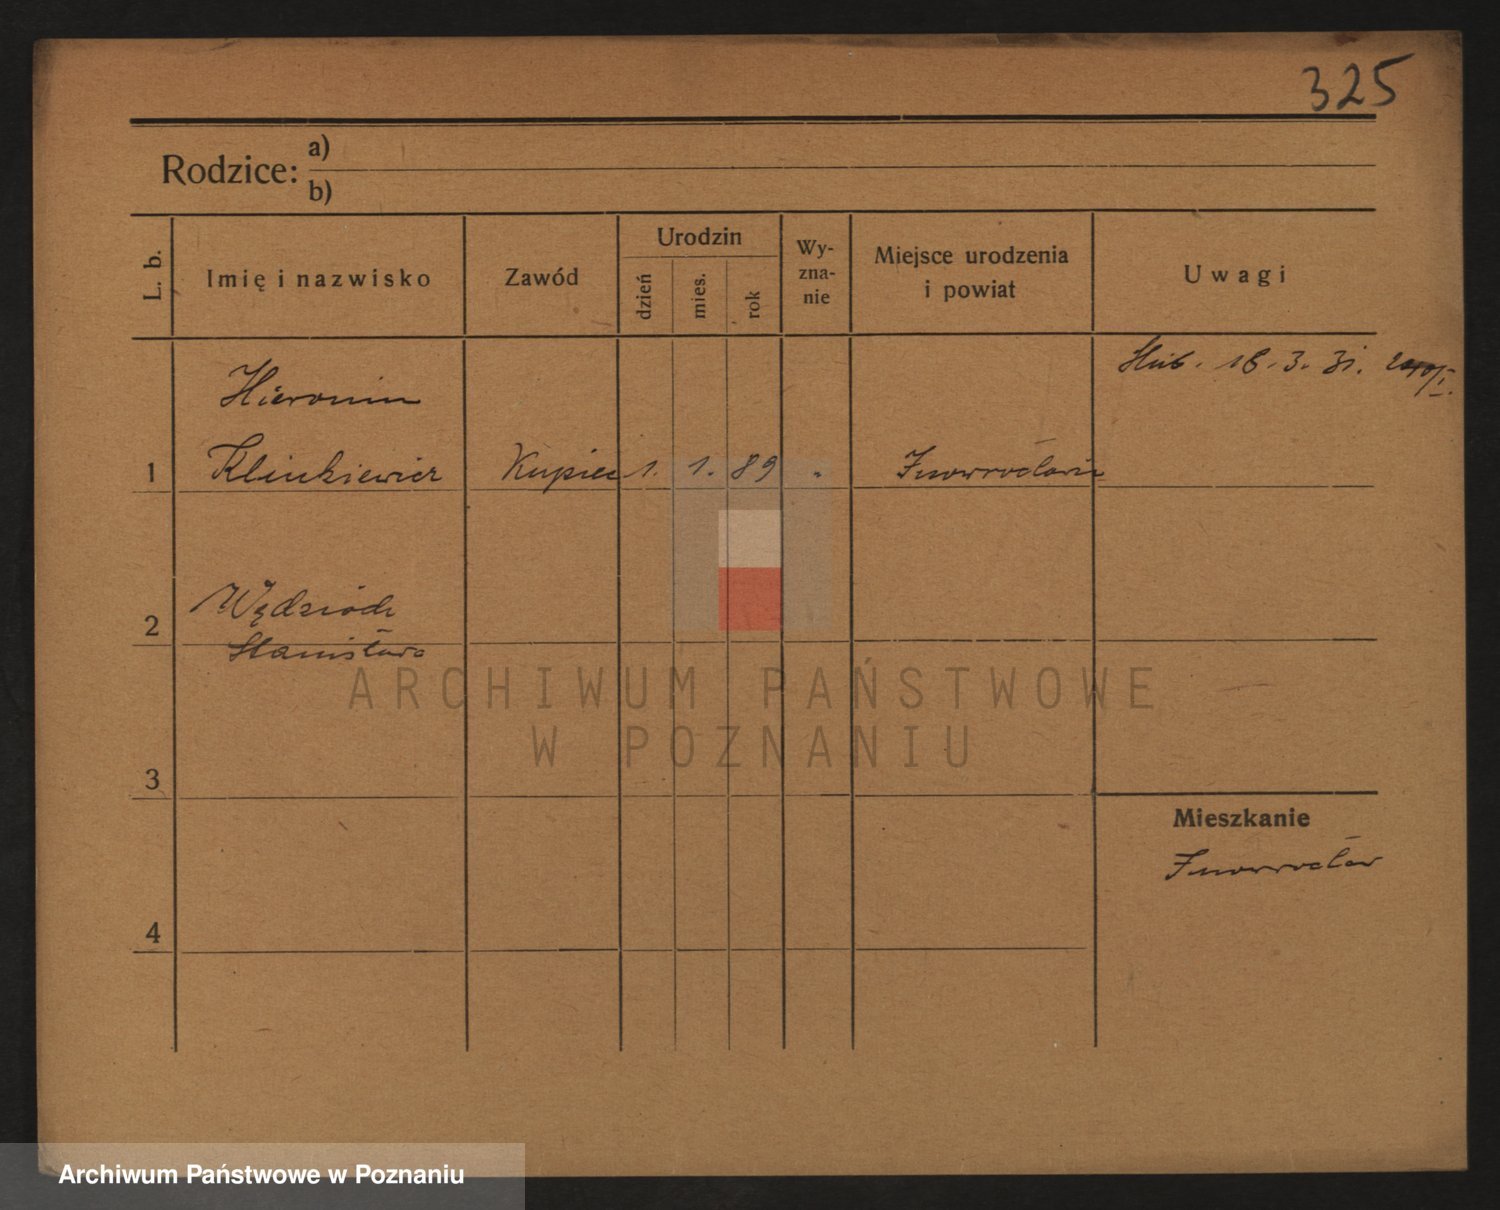 325
Rodzice: a)
b)
L. b. Imię i nazwisko Zawód Urodzin dzień mies. rok Wy-zna-nie Miejsce urodzenia i powiat Uwagi
Hieronim ślub. 18. 3. 31.
1 Klinkiewicz Kupiec 1. 1. 89 " Inowrocławiu
2 Wędzioch
Stanisława
3
Mieszkanie
Inowrocław
4
ARCHIWUM PAŃSTWOWE
W POZNANIU
Archiwum Państwowe w Poznaniu